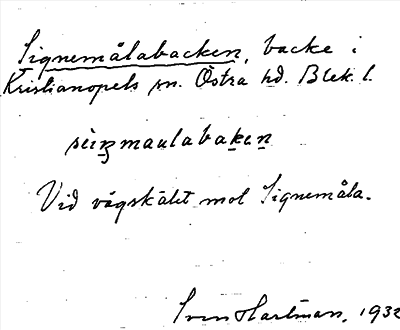 Signemålabacken, backe i
Kristianopels sn. Östra hd. Blek. l.
sìŋmaulabaken
Vid vägskälet mot Signemåla.
Sven Hartman, 1932